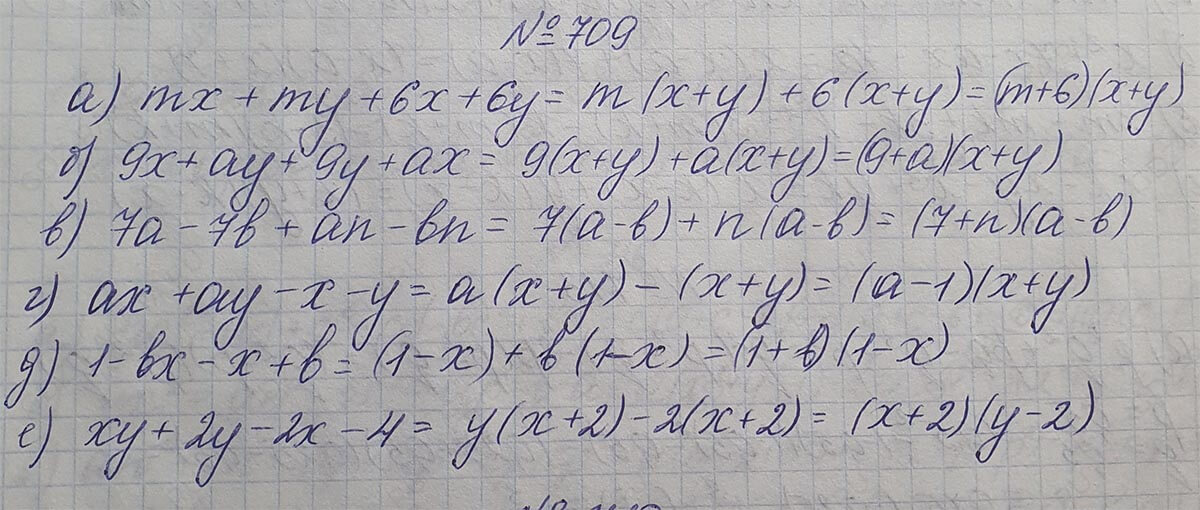 №709
а) mx + my + 6x + 6y = m(x+y) + 6(x+y) = (m+6)(x+y)
б) 9x + ay + 9y + ax = 9(x+y) + a(x+y) = (9+a)(x+y)
в) 7a - 7b + an - bn = 7(a-b) + n(a-b) = (7+n)(a-b)
г) ax + ay - x - y = a(x+y) - (x+y) = (a-1)(x+y)
д) 1 - bx - x + b = (1-x) + b(1-x) = (1+b)(1-x)
е) xy + 2y - 2x - 4 = y(x+2) - 2(x+2) = (x+2)(y-2)